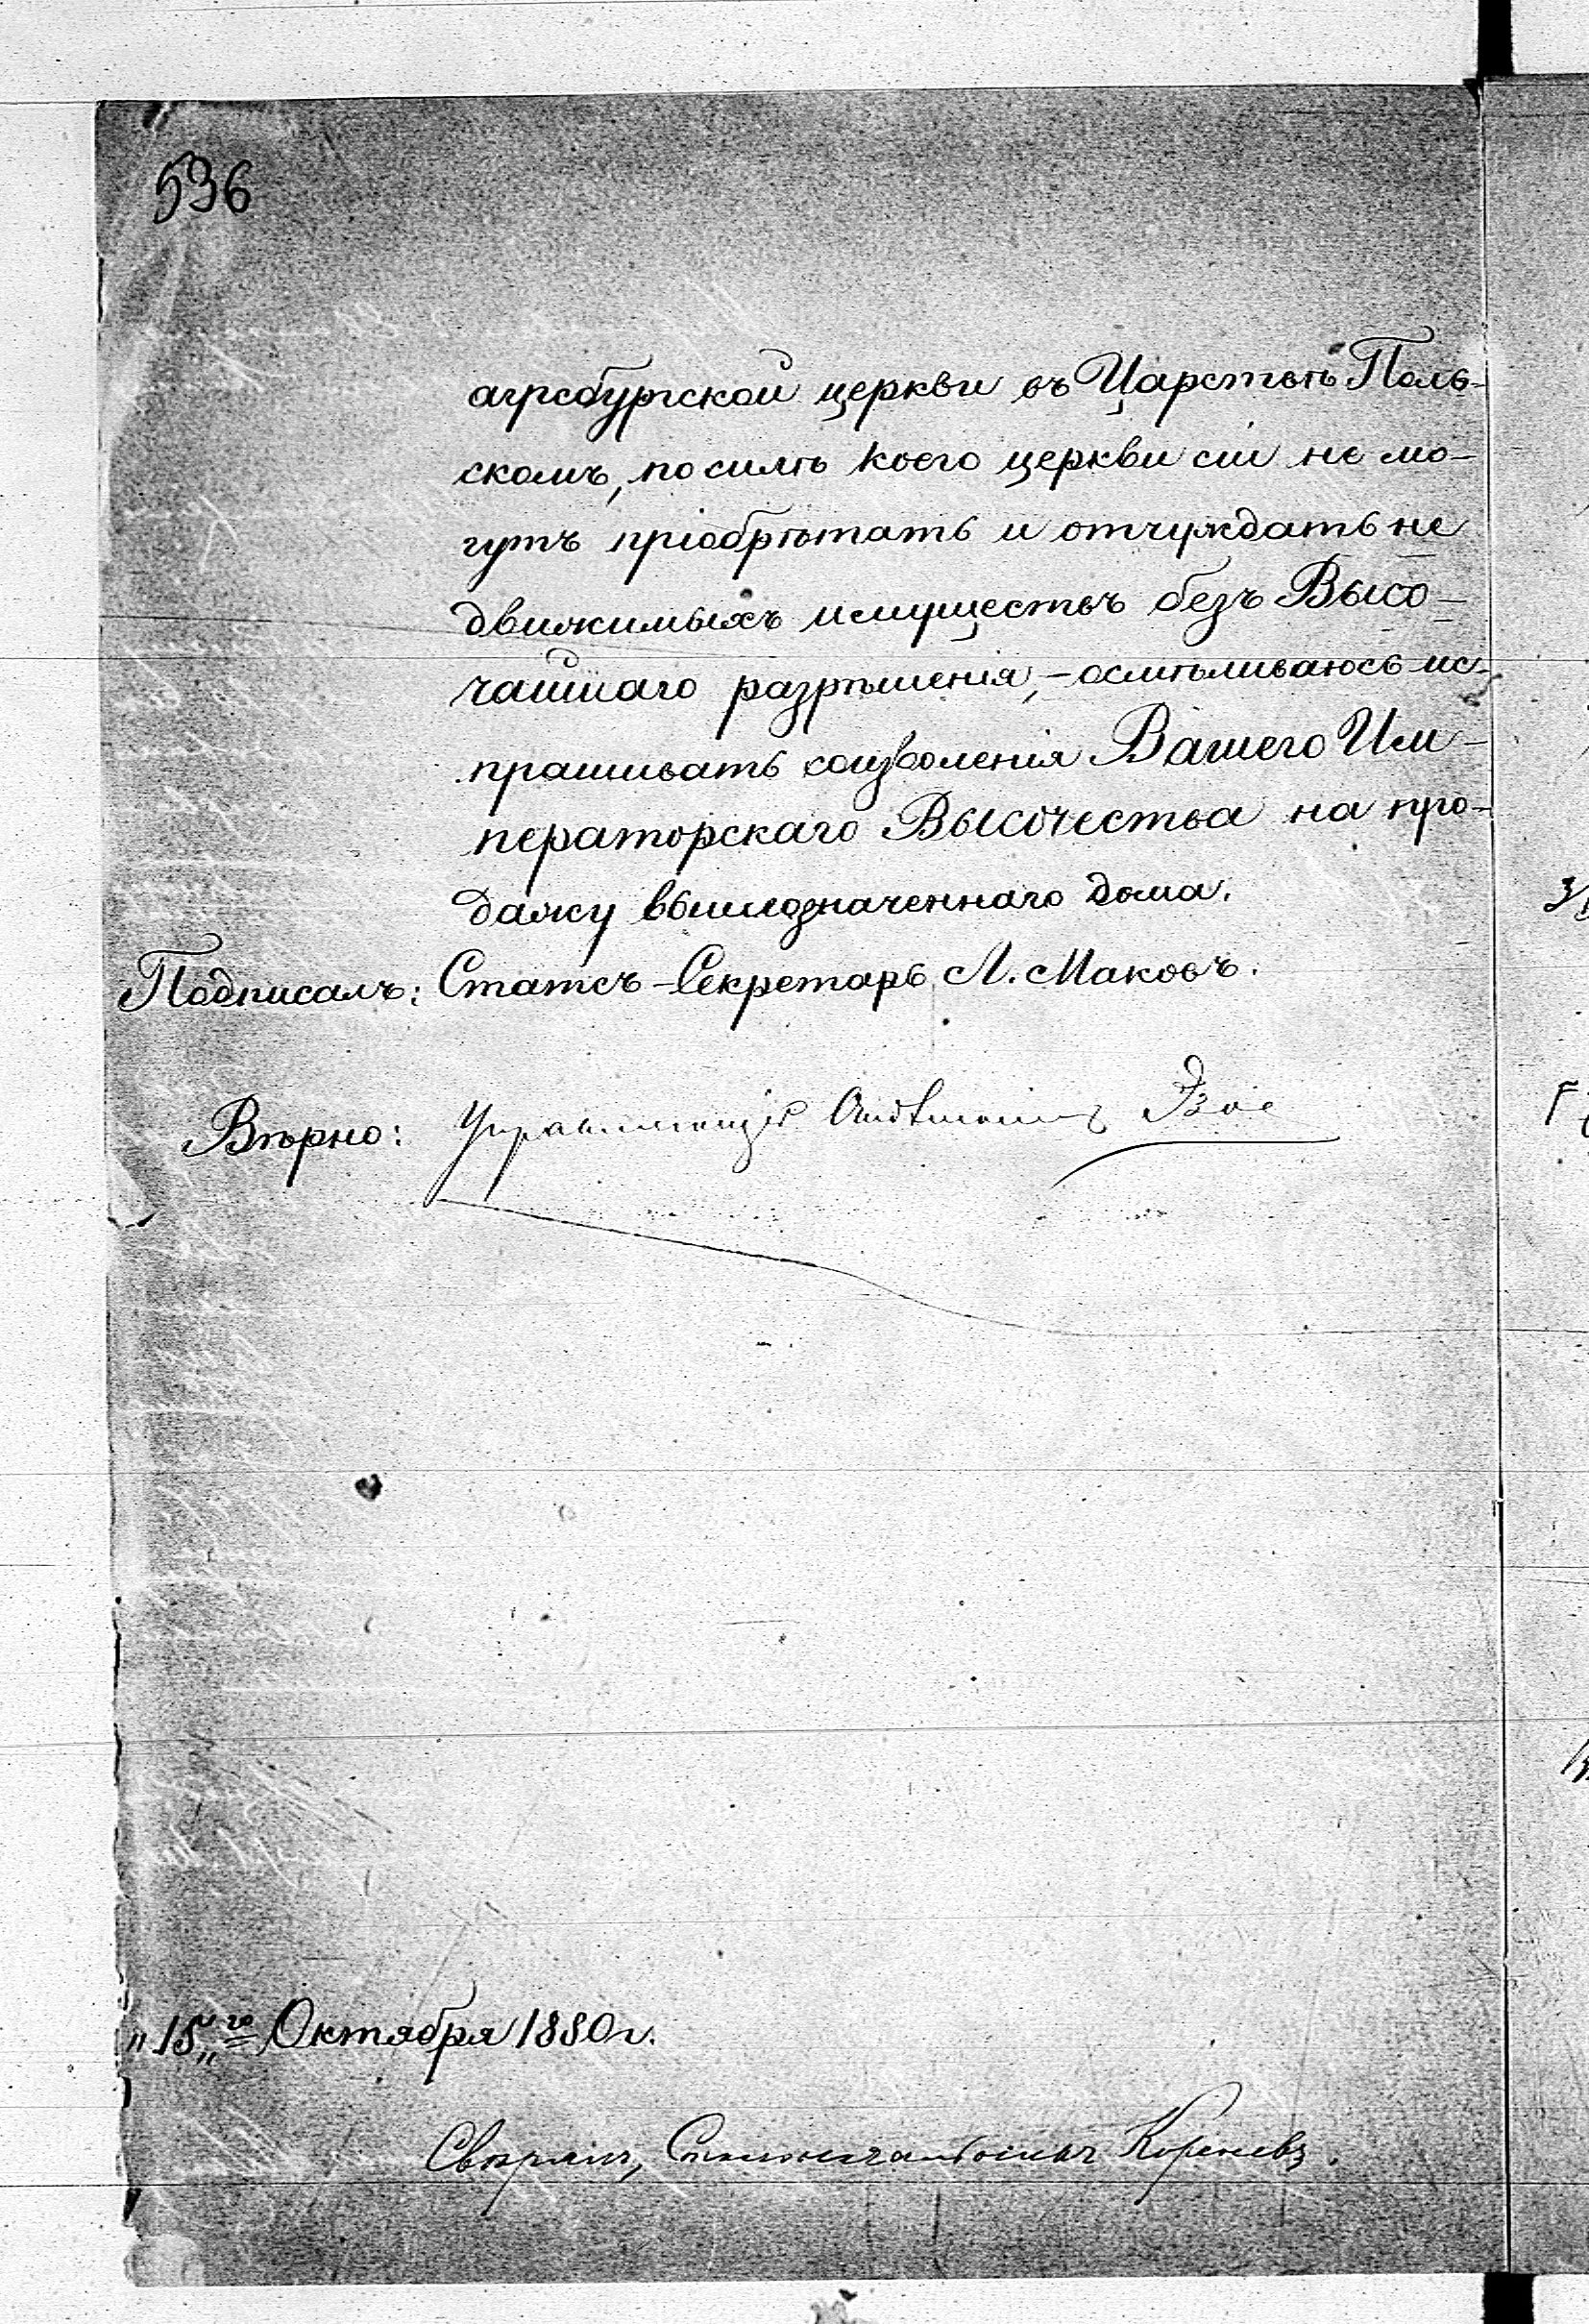 536
агрсбургской церкви въ Царствѣ Поль-
скомъ, по силѣ коего церкви сіи не мо-
гутъ пріобрѣтать и отчуждать не
движимыхъ имуществъ безъ Высо-
чайшаго разрѣшенія, - осмѣливаюсь ис-
прашивать соизволенія Вашего Им-
ператорскаго Высочества на про-
дажу вышеозначеннаго дома.
Подписалъ: Статсъ-Секретарь Л. Маковъ.
Вѣрно: Управляющій Отдѣленіемъ
„15„го Октября 1880 г.
Свѣрялъ, Столоначальникъ Кореневъ.